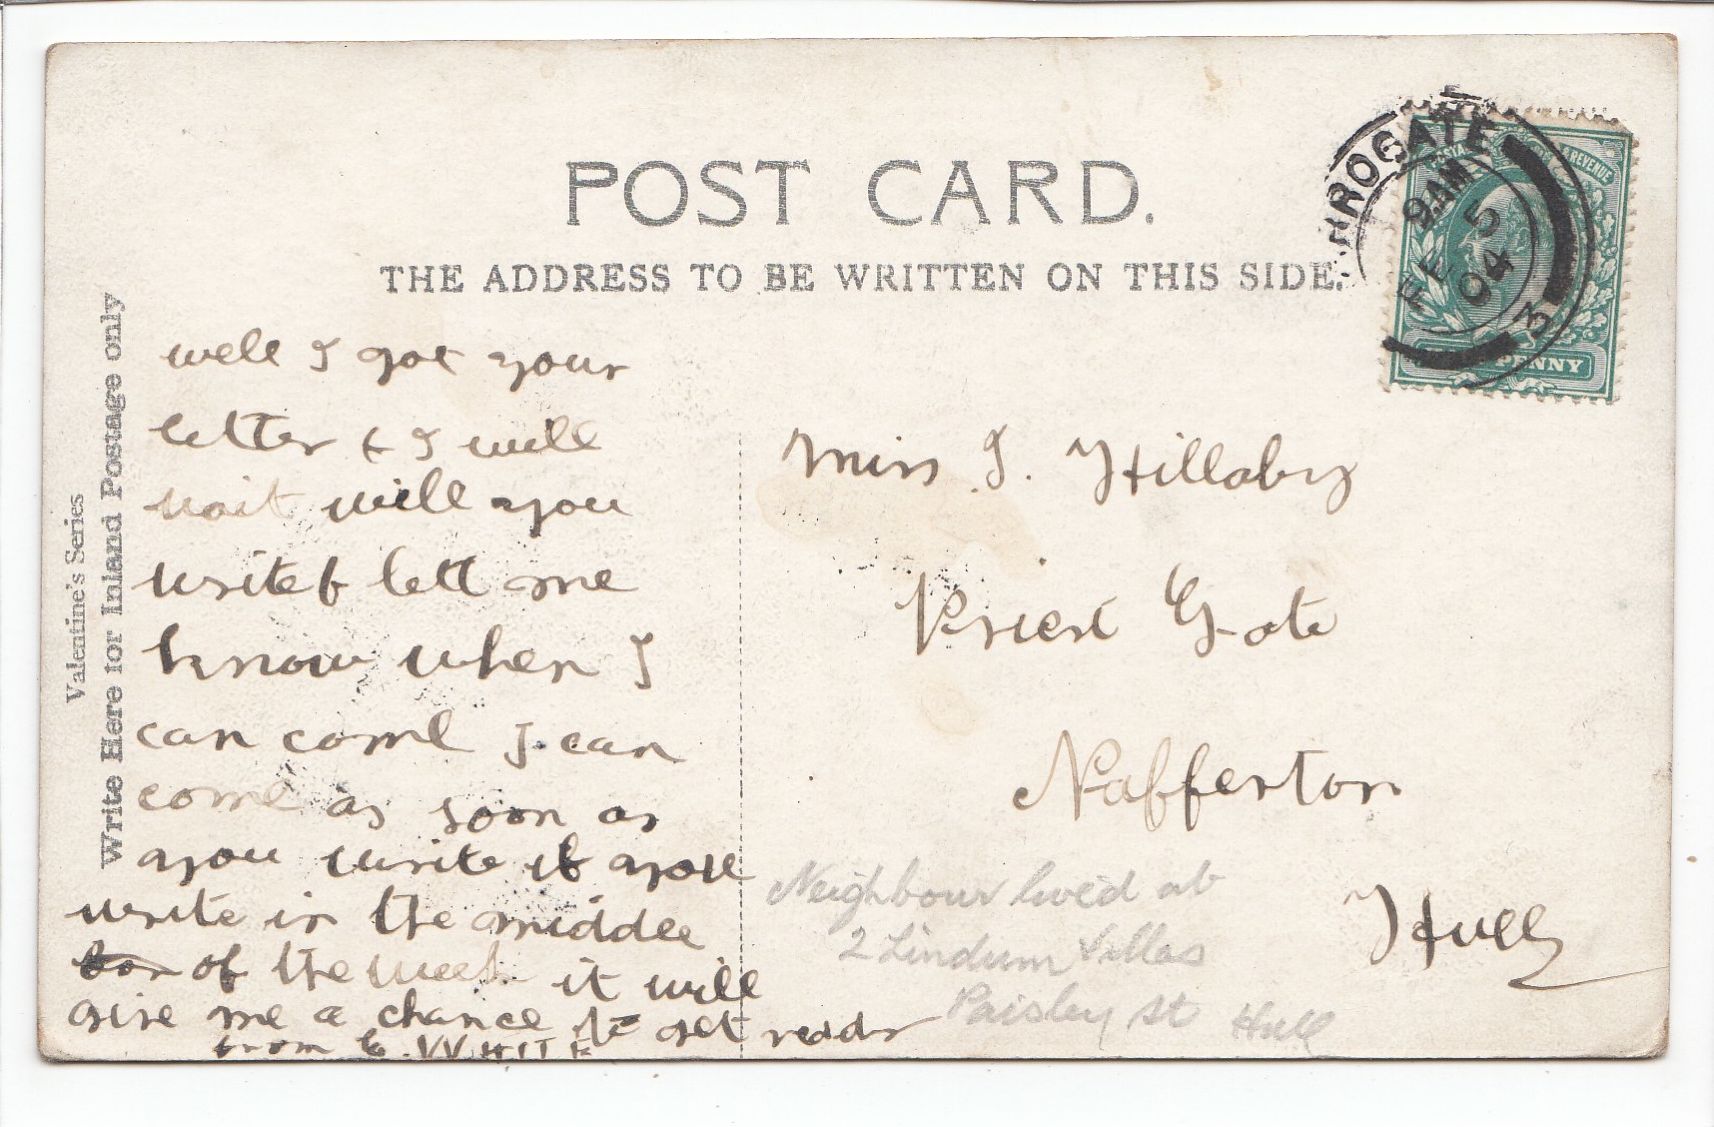 POST CARD.
THE ADDRESS TO BE WRITTEN ON THIS SIDE.
Valentine's Series
Write Here for Inland Postage only
RROGATE
9. AM
FE 5
04
3
POSTA & REVENUE
PENNY
well I got your
letter & I will
wait will you
write & lett me
know when I
can come I can
come as soon as
you write if you
write in the middle
of the week it will
give me a chance to get reddr
from E. WHITE
Miss I. Hillaby
Priest Gate
Nafferton
Hull
Neighbour lived at
2 Lindum Villas
Paisley St Hull